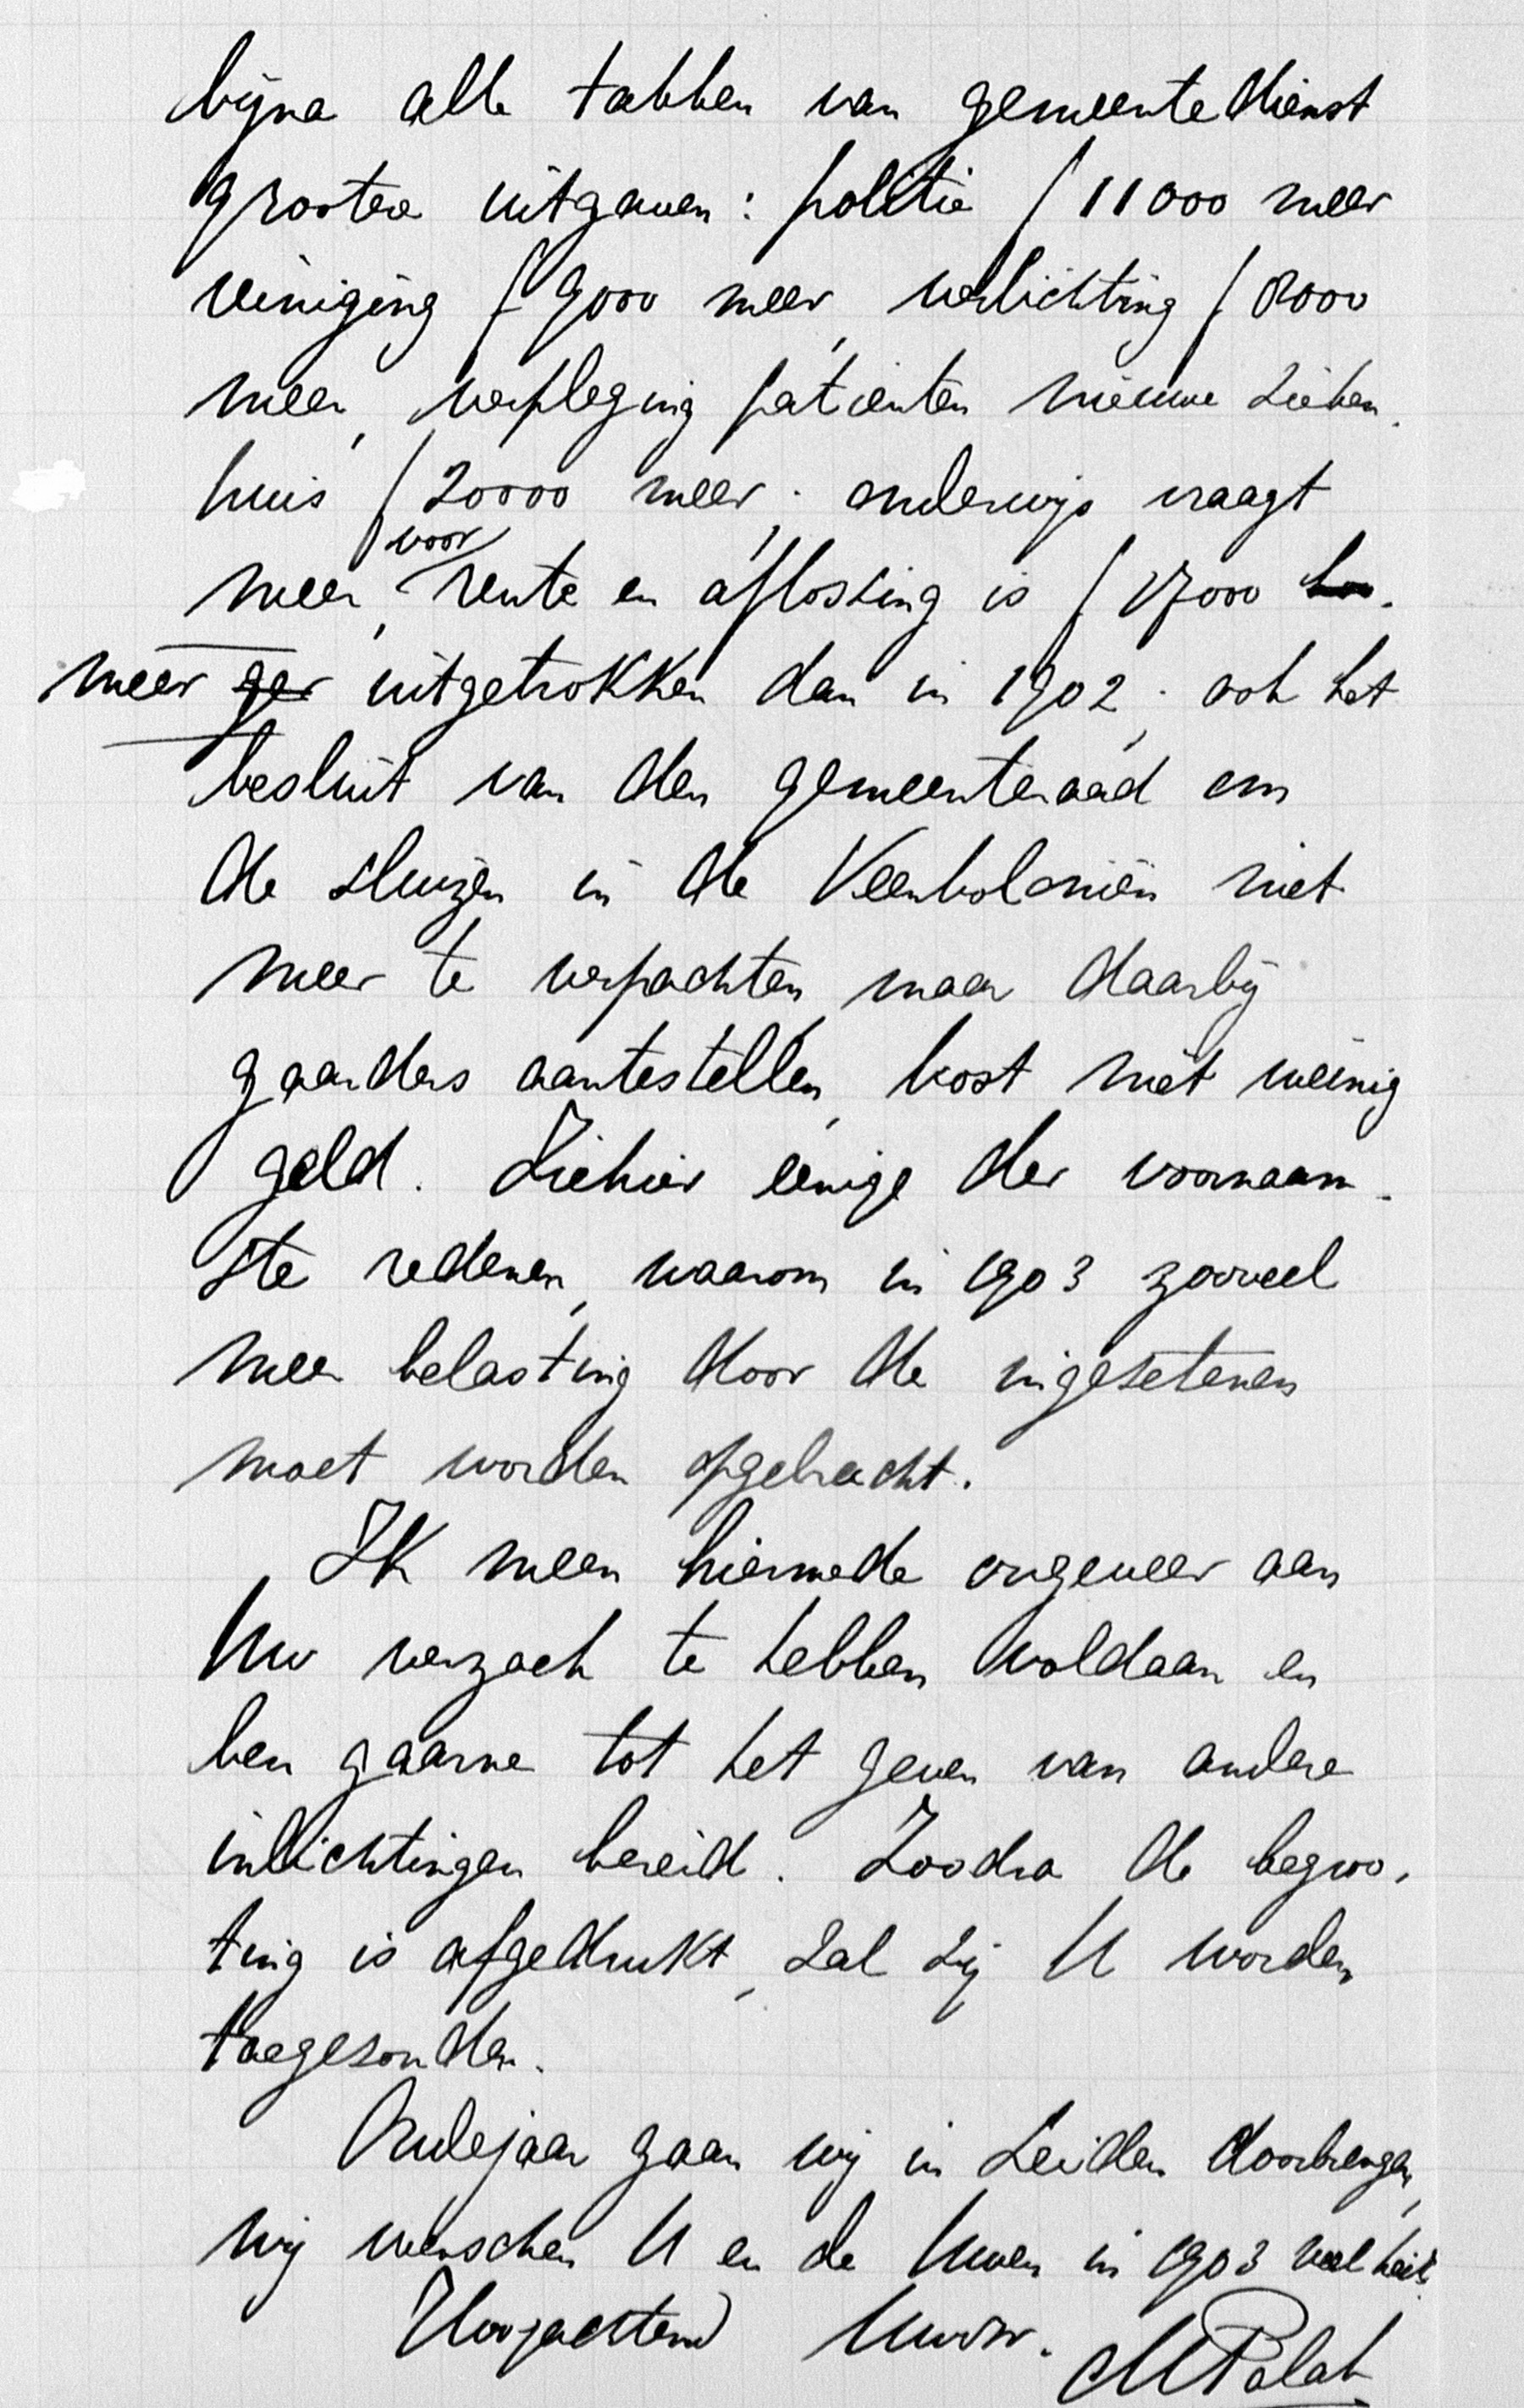 bijna alle takken van gemeentedienst
grootere uitgaven: politie ƒ 11000 meer
reiniging ƒ 9000 meer, verlichting ƒ 8000
meer, verpleging patienten nieuwe zieken-
huis ƒ 20000 meer; onderwijs vraagt
voor
meer, rente en aflossing is ƒ 17000
meer ger uitgetrokken dan in 1902; ook het
besluit van den gemeenteraad om
de sluizen in de Veenkoloniën niet
meer te verpachten, maar daarbij
gaarders aantestellen, kost niet weinig
geld. Ziehier eenige der voornaam-
ste redenen, waarom in 1903 zooveel
meer belasting door de ingezetenen
moet worden opgebracht.
Ik meen hiermede ongeveer aan
Uw verzoek te hebben voldaan en
ben gaarne tot het geven van andere
inlichtingen bereid. Zoodra de begroo-
ting is afgedrukt, zal zij U worden
toegezonden.
Oudejaar gaan wij in Leiden doorbrengen,
wij wenschen U en de Uwen in 1903 veel heil.
Hoogachtend Uwdw.